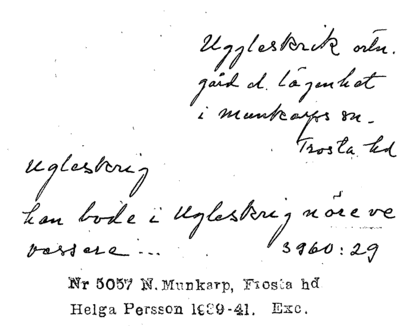 Uggleskrik ortn.
gård el. lägenhet
i munkarps sn.
Frosta hd
Ugleskrig
han bode i Ugleskrig nöreve
vassare... 3960:29
Nr 5057 N. Munkarp, Frosta hd
Helga Persson 1939-41. Exc.